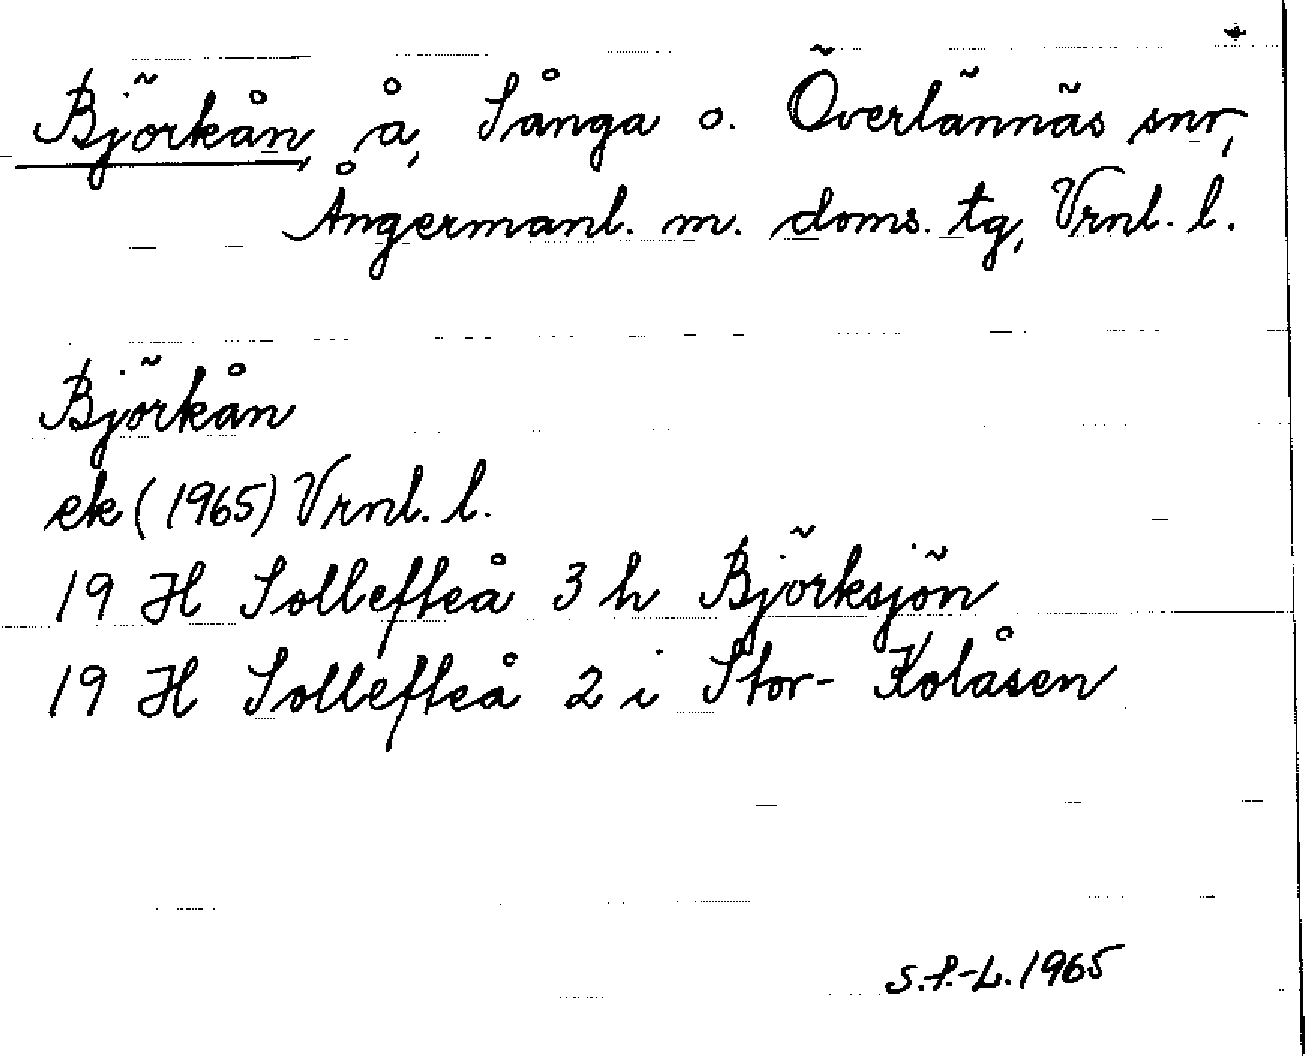 Björkån, å, Sånga o. Överlännäs snr,
Ångermanl. m. doms. tg, Vrnl. l.
Björkån
ek (1965) Vrnl. l.
19 H Sollefteå 3 h Björksjön
19 H Sollefteå 2 i Stor-Kolåsen
S.P.-L. 1965